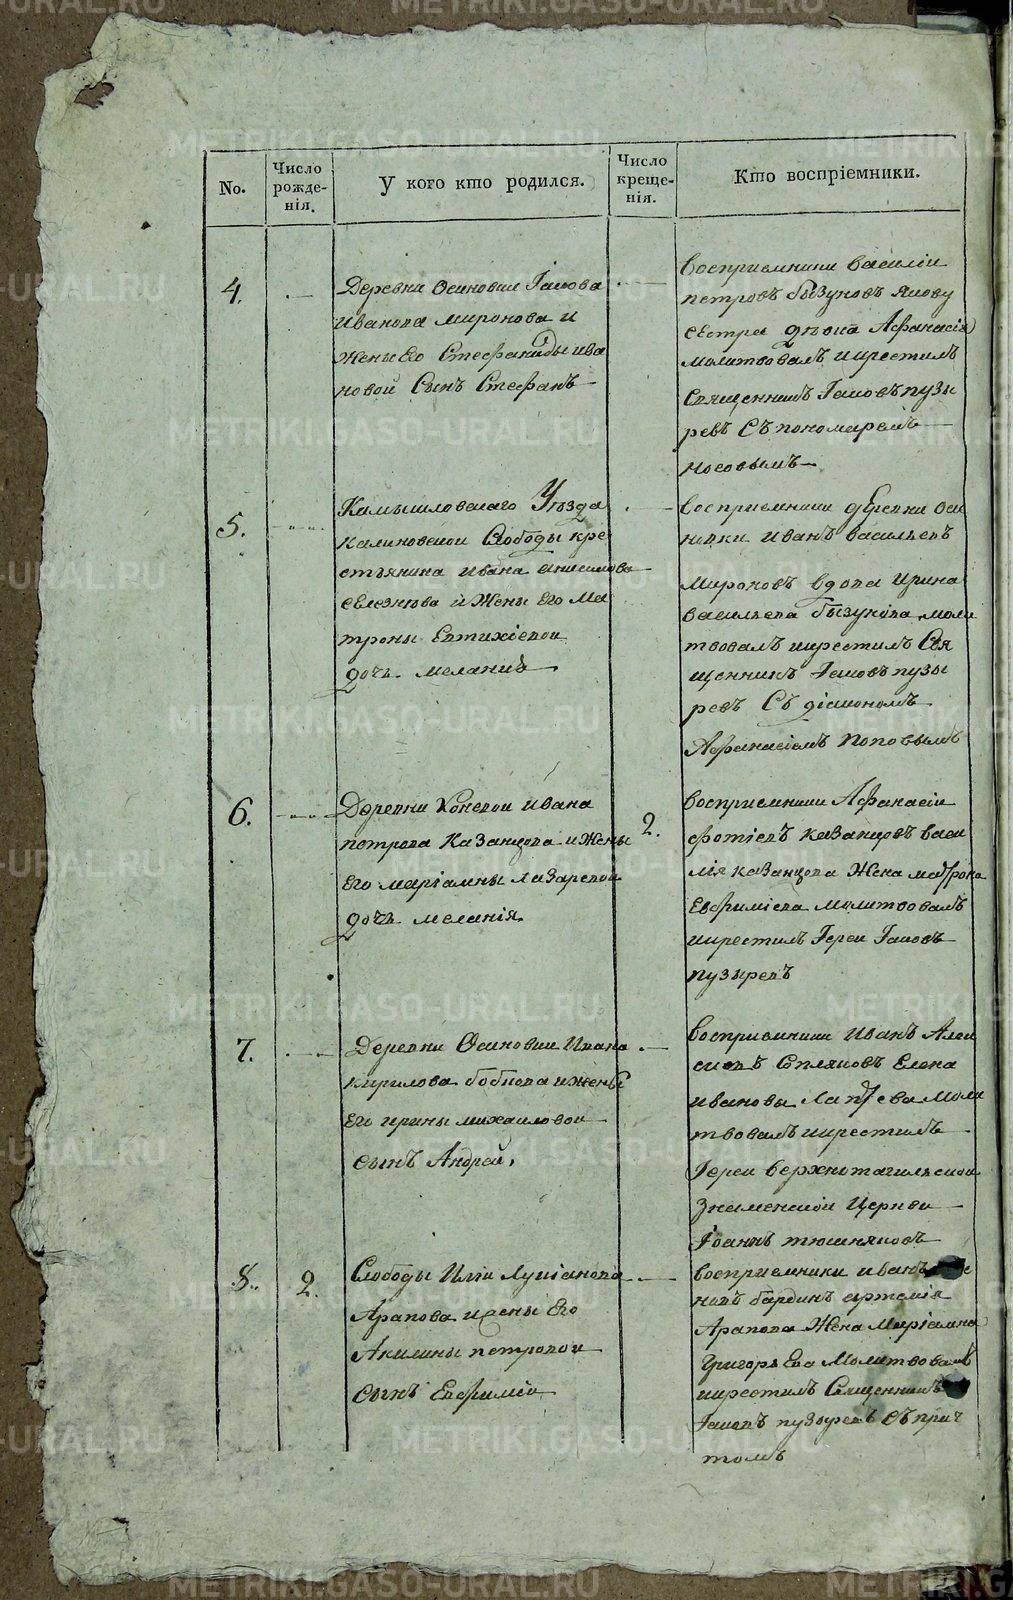 No.
Число рожде-нія.
У кого кто родился.
Число креще-нія.
Кто воспріемники.
4.
Деревни Осиновки Іакова
Иванова миронова и
жены Его Стефаниды ива
новой Сынъ Стефанъ
восприемники василіи
петровъ бызуновъ Якову
сестра дѣвка Афанасія
молитвовалъ икрестилъ
Священникъ Іаковъ пузы
ревъ Съ пономаремъ
носовымъ
5.
Камышловскаго Уѣзда
калиновской Слободы кре
стьянина ивана анисимова
селезнюва и жены Его Ма
троны Евтихіевой
дочь меланиѣ
восприемники дЕревни оси
новки иванъ васильевъ
мироновъ вдова ирина
васильева бызунова моли
твовалъ икрестилъ Свя
щенникъ Іаковъ пузы
ревъ Съ діакономъ
Афанасіемъ поповымъ
6.
Деревни Коневои ивана
петрова казанцова и жены
Его маріамны лазаревои
дочь меланія
2.
восприемники Афанасіи
фотіевъ казанцовъ васи
лія казанцова жена матрона
Евфиміева молитвовалъ
икрестилъ Іереи Іаковъ
пузыревъ
7.
Деревни Осиновки Ивана
кирилова бобнова и жены
Его ирины михаиловои
сынъ Андреи,
восприемники иванъ Алек
сиевъ Елена
ивановы Лаптева моли
твовалъ икрестилъ
Іереи верхнотагильскои
знаменскои Церкви
Іоаннъ тюшняковъ
8.
2.
Слободы Иліи Лукіанова
Арапова ижены Его
Акилины петровои
сынъ Евфиміи
восприемники иванъ
новъ бардинъ артемія
Арапова жена маріамна
ГригорьЕва молитвовалъ
икрестилъ Священникъ
Іаковъ пузыревъ съ прич
томъ
METRIKI.GASO-URAL.RU